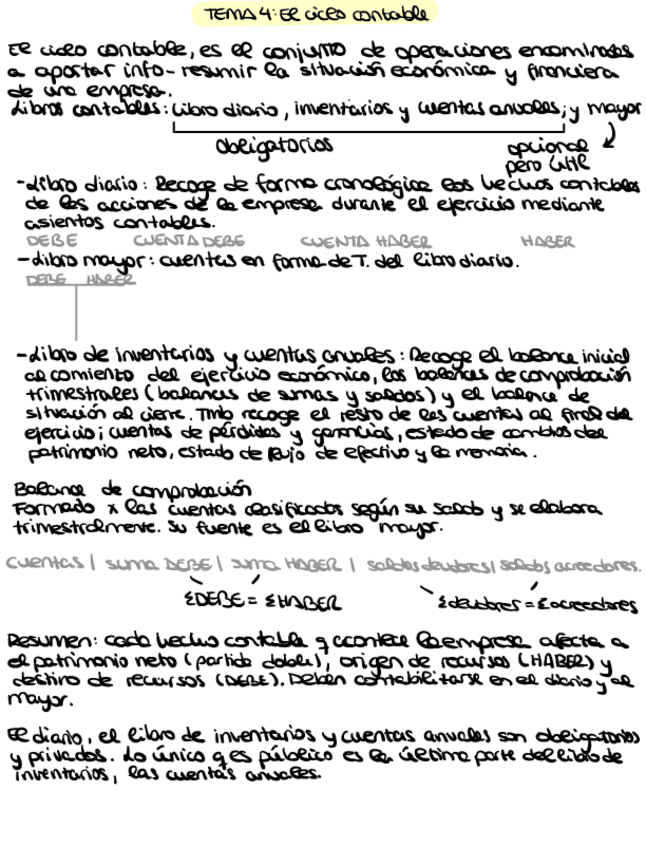 TEMA 4: El ciclo contable
El ciclo contable, es el conjunto de operaciones encaminadas
a aportar info-resumir la situación económica y financiera
de una empresa.
Libros contables: Libro diario, inventarios y cuentas anuales; y mayor
obligatorios
opcional
pero útil
-Libro diario: Recoge de forma cronológica los hechos contables
de las acciones de la empresa durante el ejercicio mediante
asientos contables.
DEBE CUENTA DEBE CUENTA HABER HABER
-Libro mayor: cuentas en forma de T. del libro diario.
DEBE HABER
-Libro de inventarios y cuentas anuales: Recoge el balance inicial
al comiento del ejercicio económico, los balances de comprobación
trimestrales (balances de sumas y saldos) y el balance de
situación al cierre. Tmb recoge el resto de las cuentas al final del
ejercicio; cuentas de pérdidas y ganancias, estado de cambios del
patrimonio neto, estado de flujo de efectivo y la memoria.
Balance de comprobación
Formado x las cuentas clasificadas según su saldo y se elabora
trimestralmente. Su fuente es el libro mayor.
cuentas | suma DEBE | suma HABER | saldos deudores | saldos acreedores.
ΣDEBE = ΣHABER Σdeudores = Σacreedores
Resumen: cada hecho contable q acontece la empresa afecta a
el patrimonio neto (partida doble), origen de recursos (HABER) y
destino de recursos (DEBE). Deben contabilitarse en el diario y al
mayor.
El diario, el libro de inventarios y cuentas anuales son obligatorios
y privados. Lo único q es público es la última parte del libro de
inventarios, las cuentas anuales.